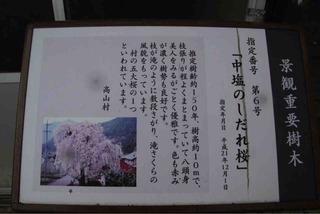 景観重要樹木
指定番号 第6号
「中塩のしだれ桜」
指定年月日 平成21年12月1日
推定樹齢約150年、樹高約10mで、
枝張りが程よくまとまっていて八頭身
美人をみるがごとく優雅です。色も赤み
が濃く樹勢も良好です。
枝が滝のように数段さがり、滝ざくらの
風貌をもっています。
村の五大桜の1つ
といわれています。
高山村